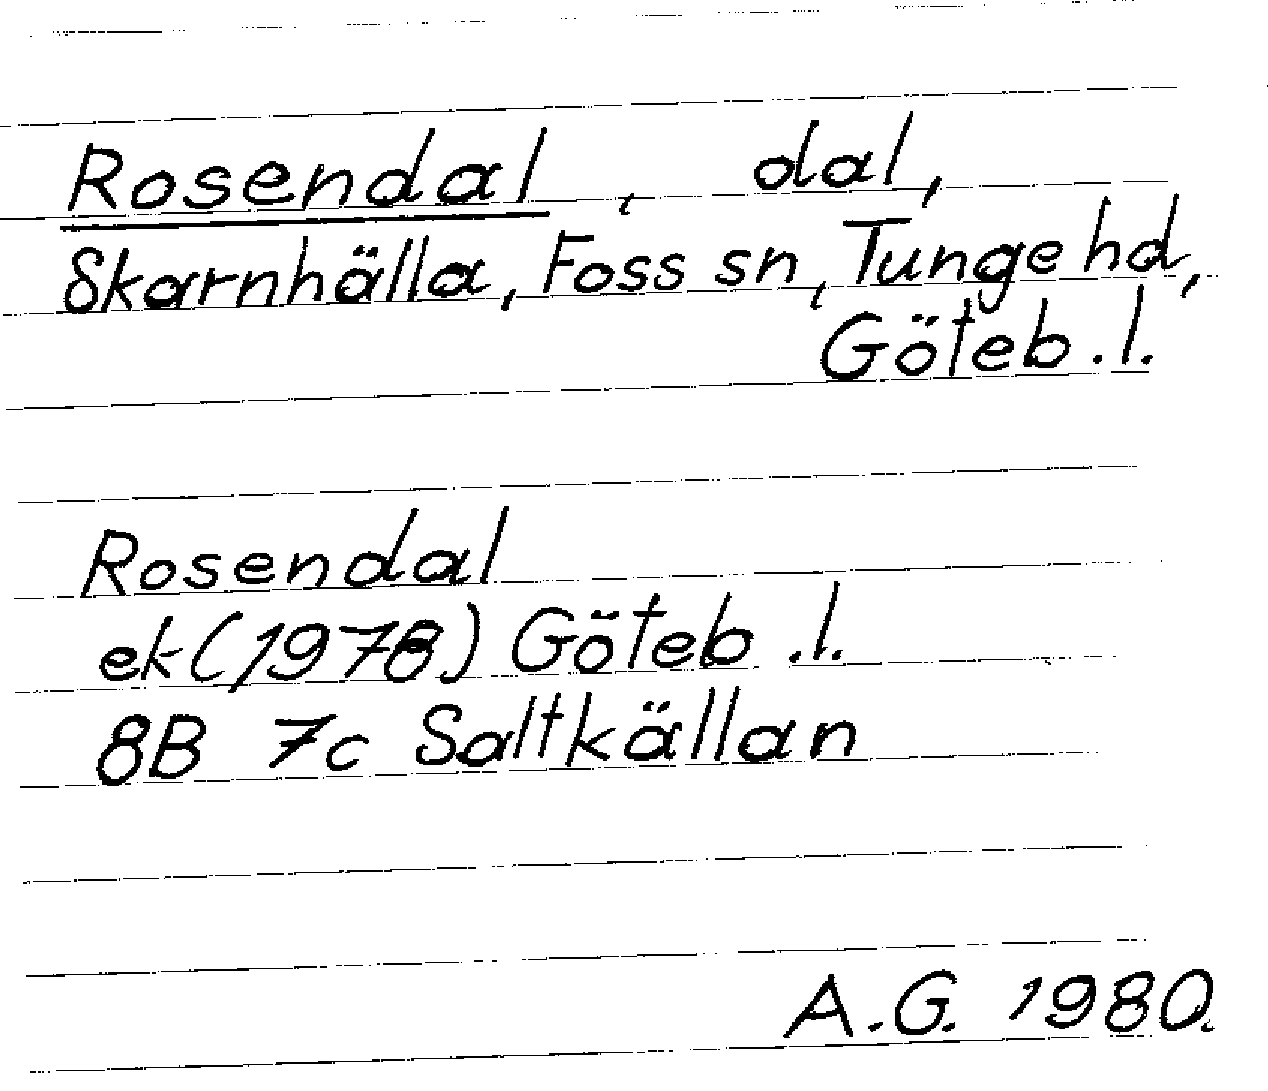 Rosendal, dal,
Skarnhälla, Foss sn, Tunge hd,
Göteb.l.
Rosendal
ek (1978) Göteb.l.
8B 7c Saltkällan
A.G. 1980.